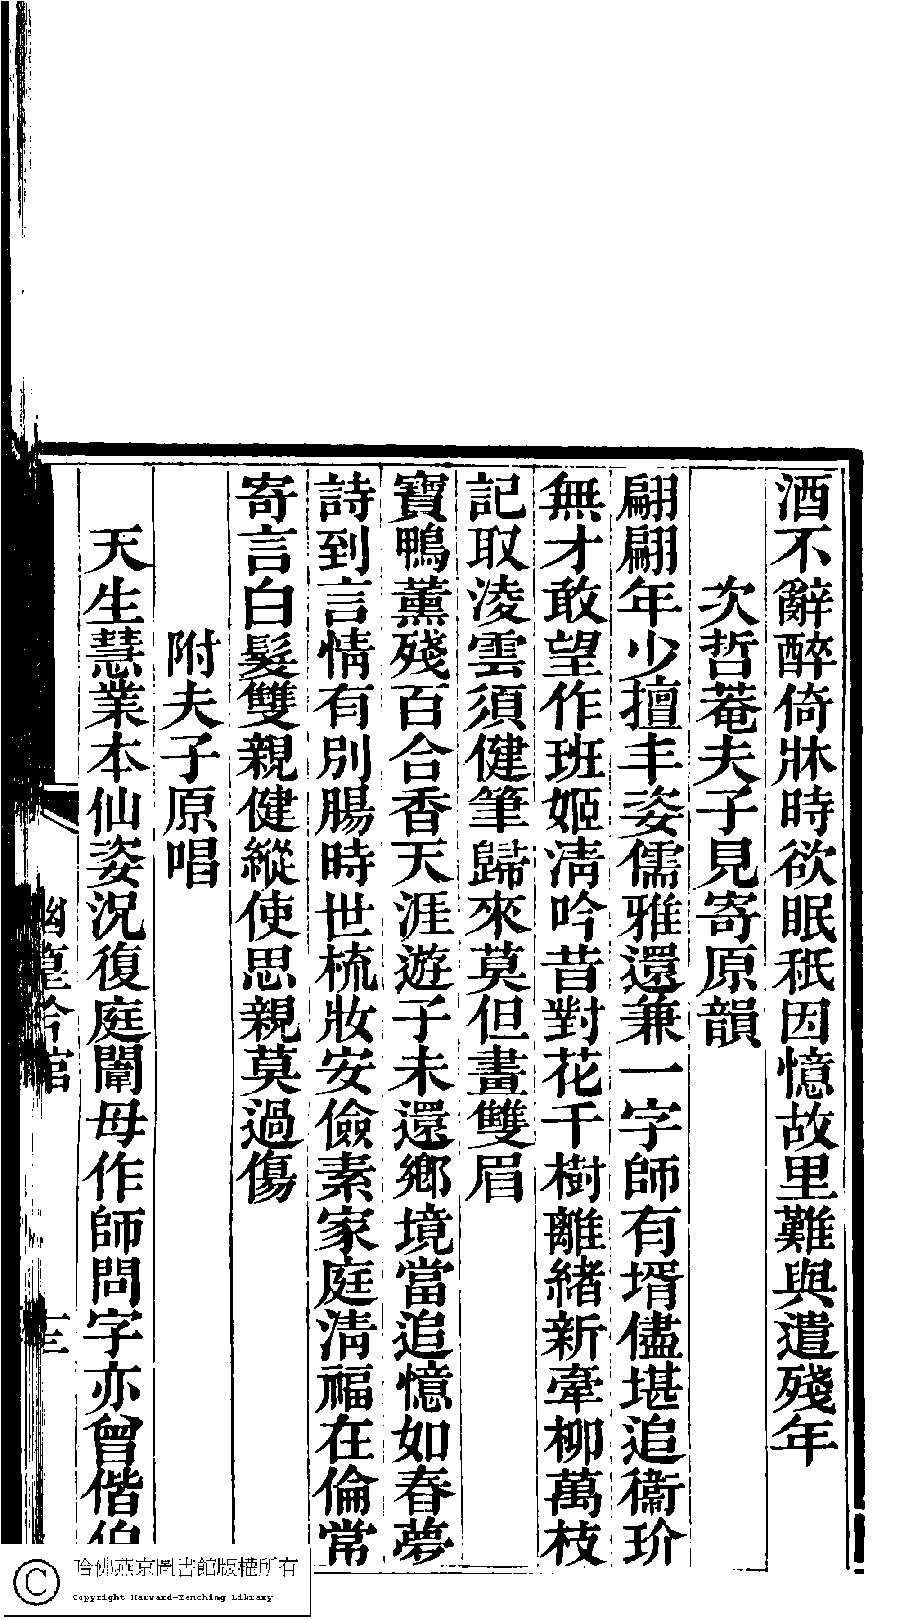 酒不辭醉倚牀時欲眠秖因憶故里難與遣殘年
次哲菴夫子見寄原韻
翩翩年少擅丰姿儒雅還兼一字師有壻儘堪追衞玠
無才敢望作班姬淸吟昔對花千樹離緒新牽柳萬枝
記取淩雲須健筆歸來莫但畫雙眉
寶鴨薰殘百合香天涯遊子未還鄉境當追憶如春夢
詩到言情有別腸時世梳妝安儉素家庭淸福在倫常
寄言白髮雙親健縱使思親莫過傷
附夫子原唱
天生慧業本仙姿況復庭闈母作師問字亦曾偕伯
吟館
哈佛燕京圖書館版權所有
Copyright Harvard-Yenching Library